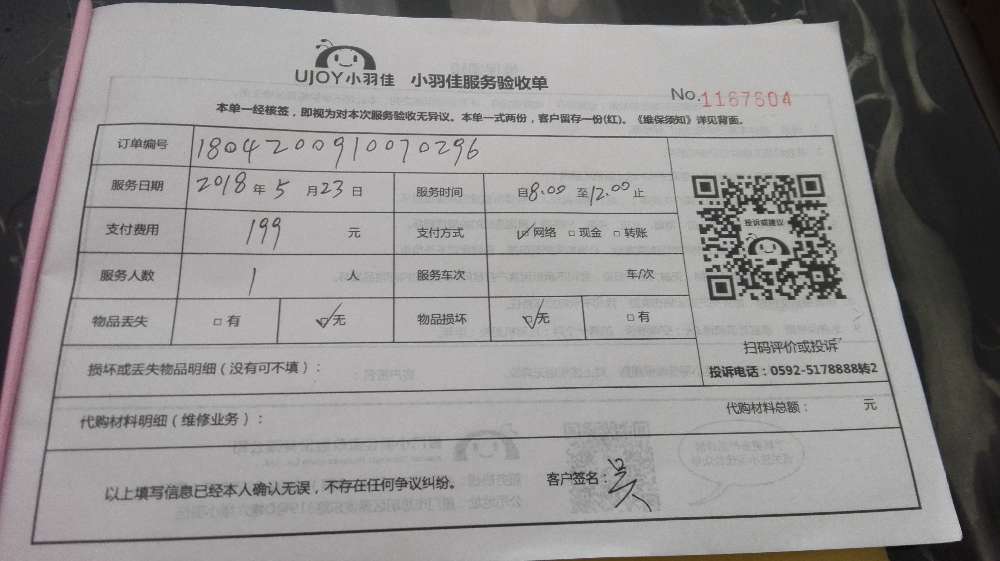 UJOY小羽佳 小羽佳服务验收单
No.1167604
本单一经核签，即视为对本次服务验收无异议。本单一式两份，客户留存一份(红)。《维保须知》详见背面。
订单编号 1804200910070296
服务日期 2018年5月23日 服务时间 自8:00至12:00止
支付费用 199 元 支付方式 ☑网络 □现金 □转账
服务人数 1 人 服务车次 车/次
物品丢失 □有 ☑无 物品损坏 ☑无 □有
投诉或建议
扫码评价或投诉
投诉电话：0592-5178888转2
损坏或丢失物品明细（没有可不填）：
代购材料明细（维修业务）： 代购材料总额： 元
以上填写信息已经本人确认无误，不存在任何争议纠纷。 客户签名：吴